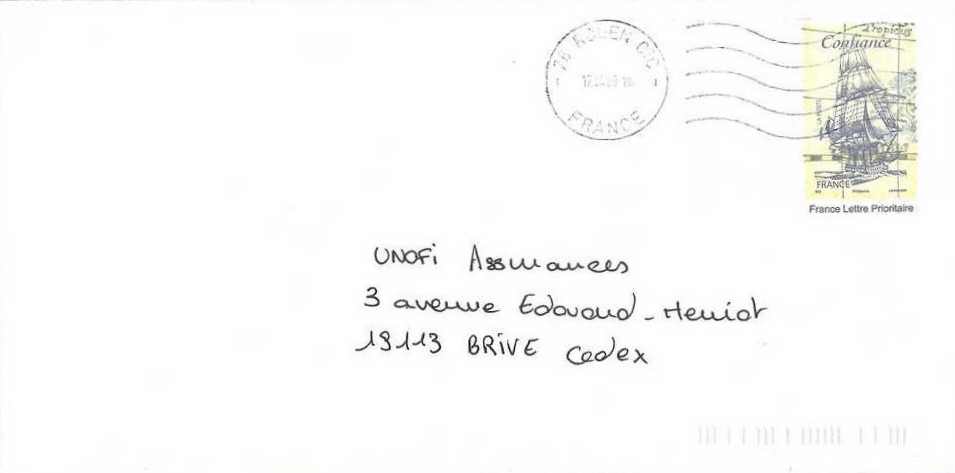 Tropicus
Confiance
LA POSTE
FRANCE
France Lettre Prioritaire
76 ROUEN CTC
FRANCE
UNOFi Assurances
3 avenue Edouard-Herriot
19113 BRIVE Cedex